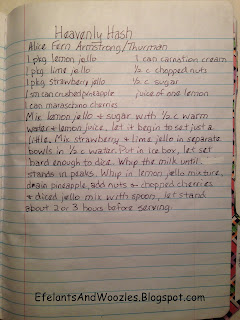 Heavenly Hash
Alice Fern Armstrong/Thurman
1 pkg lemon jello 1 can carnation cream
1 pkg lime jello 1/2 c chopped nuts
1 pkg strawberry jello 1/2 c sugar
1 sm can crushed pineapple juice of one lemon
1 can maraschino cherries
Mix lemon jello + sugar with 1/2 c warm
water & lemon juice, let it begin to set just a
little. Mix strawberry & lime jello in separate
bowls in 1/2 c water. Put in ice box, let set
hard enough to dice. Whip the milk until
stands in peaks. Whip in lemon jello mixture,
drain pineapple, add nuts & chopped cherries
& diced jello mix with spoon, let stand
about 2 or 3 hours before serving.
EfelantsAndWoozles.Blogspot.com